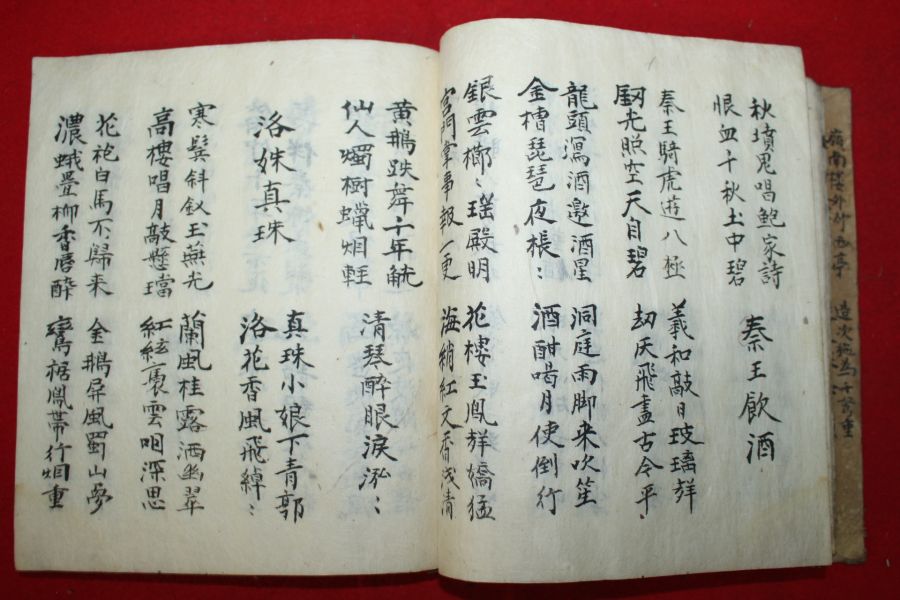 秋墳鬼唱鮑家詩
恨血千秋土中碧
秦王飲酒
秦王騎虎遊八極
劒光照空天自碧
羲和敲日玻璃聲
刼灰飛盡古今平
龍頭瀉酒邀酒星
金槽琵琶夜棖〻
洞庭雨脚来吹笙
酒酣喝月使倒行
銀雲櫛〻瑶殿明
宮門掌事報一更
花樓玉鳳聲嬌猛
海綃紅文香浅清
黃鵝跌舞千年觥
仙人燭樹蠟烟輕
清琴醉眼淚泓〻
洛姝真珠
真珠小娘下青郭
洛花香風飛綽〻
寒鬓斜釵玉燕光
高樓唱月敲懸璫
蘭風桂露洒幽翠
紅絃裊雲咽深思
花袍白馬不歸来
濃蛾疊柳香唇醉
金鵝屏風蜀山夢
鸞裾鳳帶行烟重
嶺南樓外竹